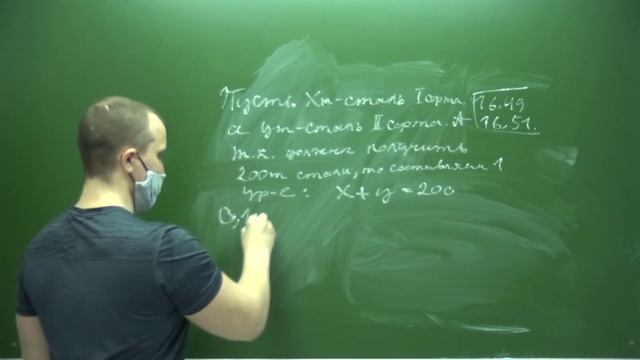 Пусть Xт-сталь I сорта.
а yт-сталь II сорта. А
т.к. должны получить
200т стали, то составляем 1
ур-е: x + y = 200
0,
16.49
16.51.